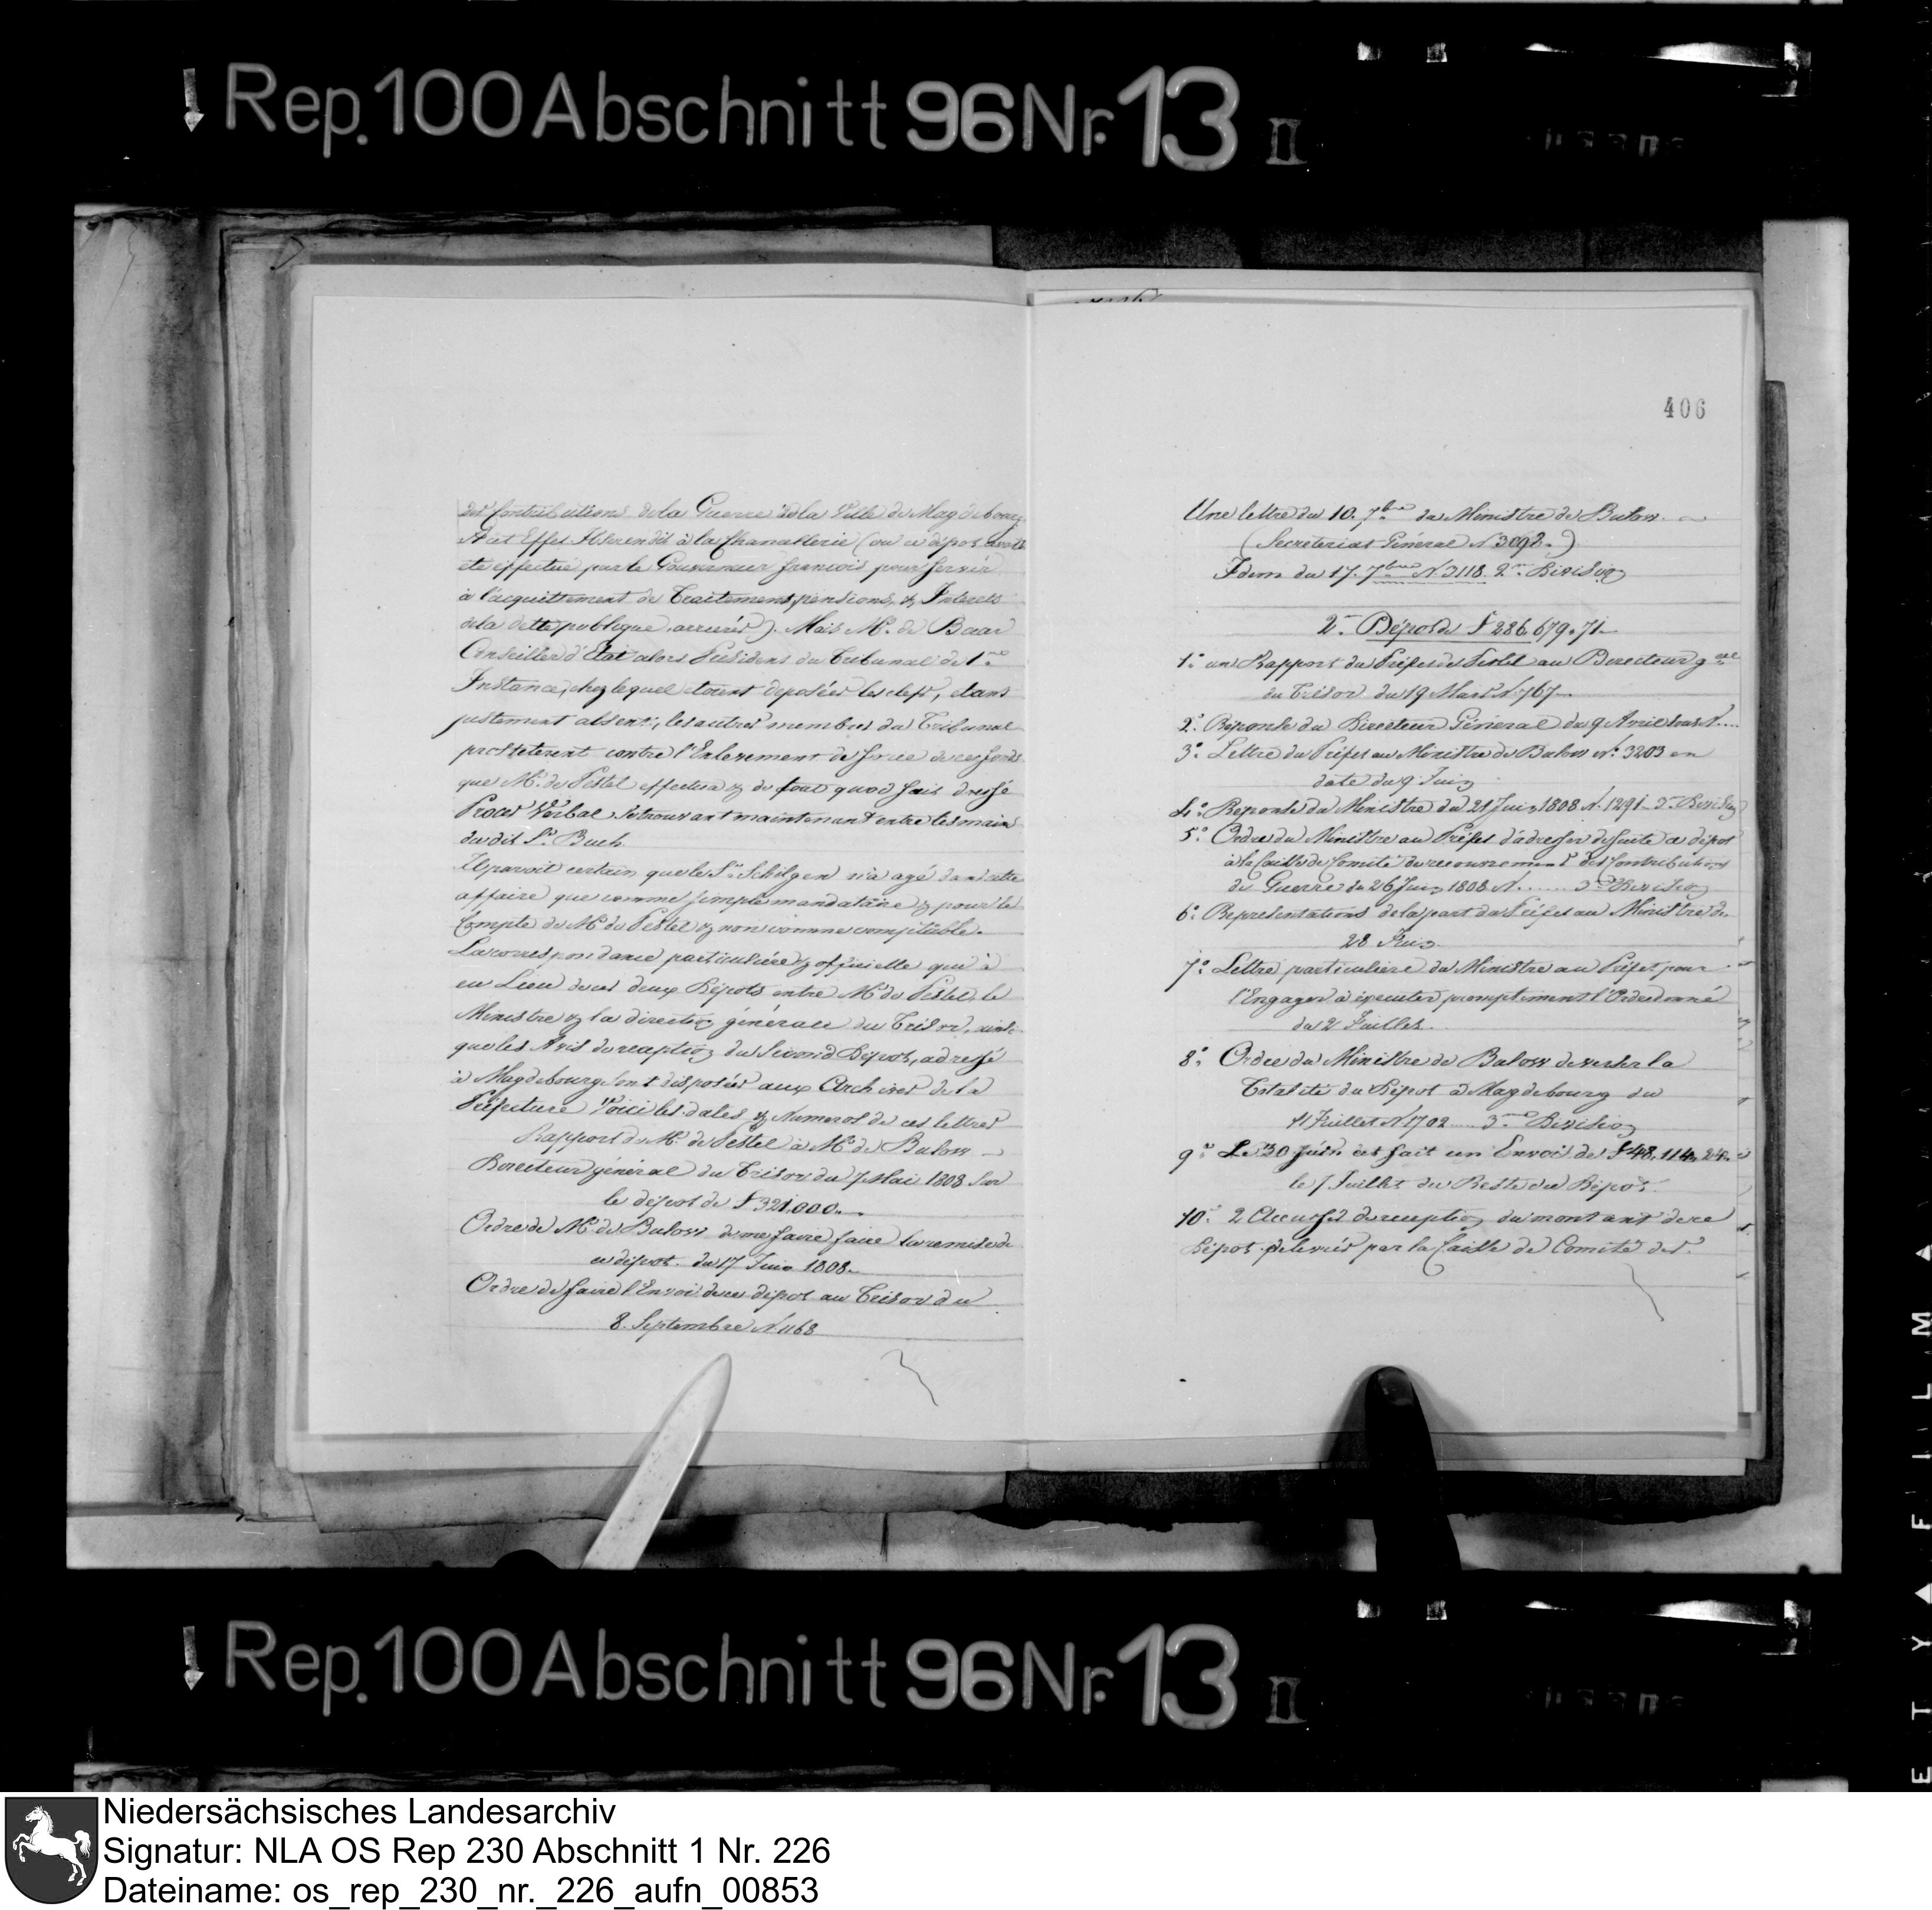 Rep. 100 Abschnitt 96 Nr. 13 II
des Contributions de la Guerre de la Ville de Magdebourg
A cet Effet Il se rendit à la Chancellerie (ou ce dépot avoit
été effectué par le Gouverneur francois pour servir
à l'acquittement de Traitements, pensions, & Interets
de la dette publique arrierés). Mais Mr. de Baar
Conseiller d'Etat alors President du Tribunal de 1re
Instance, chez lequel etoient deposées les clefs, etant
justement absent, les autres membres du Tribunal
protesterent contre l'Enlevement de force de ces fonds
que Mr. de Pestel effectua & de tout quoi fait dressé
Procès Verbal se trouvant maintenant entre les mains
du dit Sr. Buch.
Il paroit certain que le Sr. Schilgen n'a agé dans cette
affaire que comme simple mandataire & pour le
Compte de Mr. de Pestel & non comme comptable.
La correspondance particuliére & officielle qui à
eu Lieu de ces deux Dépots entre Mr. de Pestel, le
Ministre & la direction générale du Trésor, ainsi
que les Avis de reception du Second Dépot, adressé
à Magdebourg sont disposées aux Archives de la
Prefecture Voici les dates & Numeros de ces lettres
Rapport de Mr. de Pestel à Mr. de Bulow
Directeur général du Trésor du 7 Mai 1808 sur
le dépot de F 321,000.
Ordre de Mr. de Bulow de me faire faire la remise de
ce dépot. du 17 Juin 1808.
Ordre de faire l'Envoi de ce dépot au Trésor du
8. Septembre N 1168
406
Une lettre du 10. 7bre du Ministre de Bulow.
(Secretariat Géneral N 3092.)
Idem du 17. 7bre N. 3118. 2me Division
2me Dépot de F 286,679.71
1.° un Rapport du Préfet de Pestel au Directeur gral
du Trésor du 19 Mars N. 767
2.° Réponse du Directeur Géneral du 9 Avril sous N....
3.° Lettre du Préfet au Ministre de Bulow No. 3203 en
date du 9 Juin
4.° Reponse du Ministre du 21 Juin 1808 N. 1291 3me Division
5.° Ordre du Ministre au Préfet d'adresser de suite ce dépot
à la Caisse de Comité de recouvrement des Contributions
de Guerre du 26 Juin 1808 N....... 3me Division
6.° Representations de la part du Préfet au Ministre du
28 Juin
7.° Lettre particuliere du Ministre au Préfet pour
l'Engager à executer promptement l'Ordre donné
du 2 Juillet.
8.° Ordre du Ministre de Bulow de verser la
Totalité du Dépot à Magdebourg du
11 Juillet N 1702 .... 3me Division
9.° Le 30 Juin est fait un Envoi de F 48,114, 24.
le / Juillet du Reste du Dépot.
10.° 2 Accusés de reception du montant de ce
Dépot delivrés par la Caisse de Comité det.
Rep. 100 Abschnitt 96 Nr. 13 II
Niedersächsisches Landesarchiv
Signatur: NLA OS Rep 230 Abschnitt 1 Nr. 226
Dateiname: os_rep_230_nr._226_aufn_00853